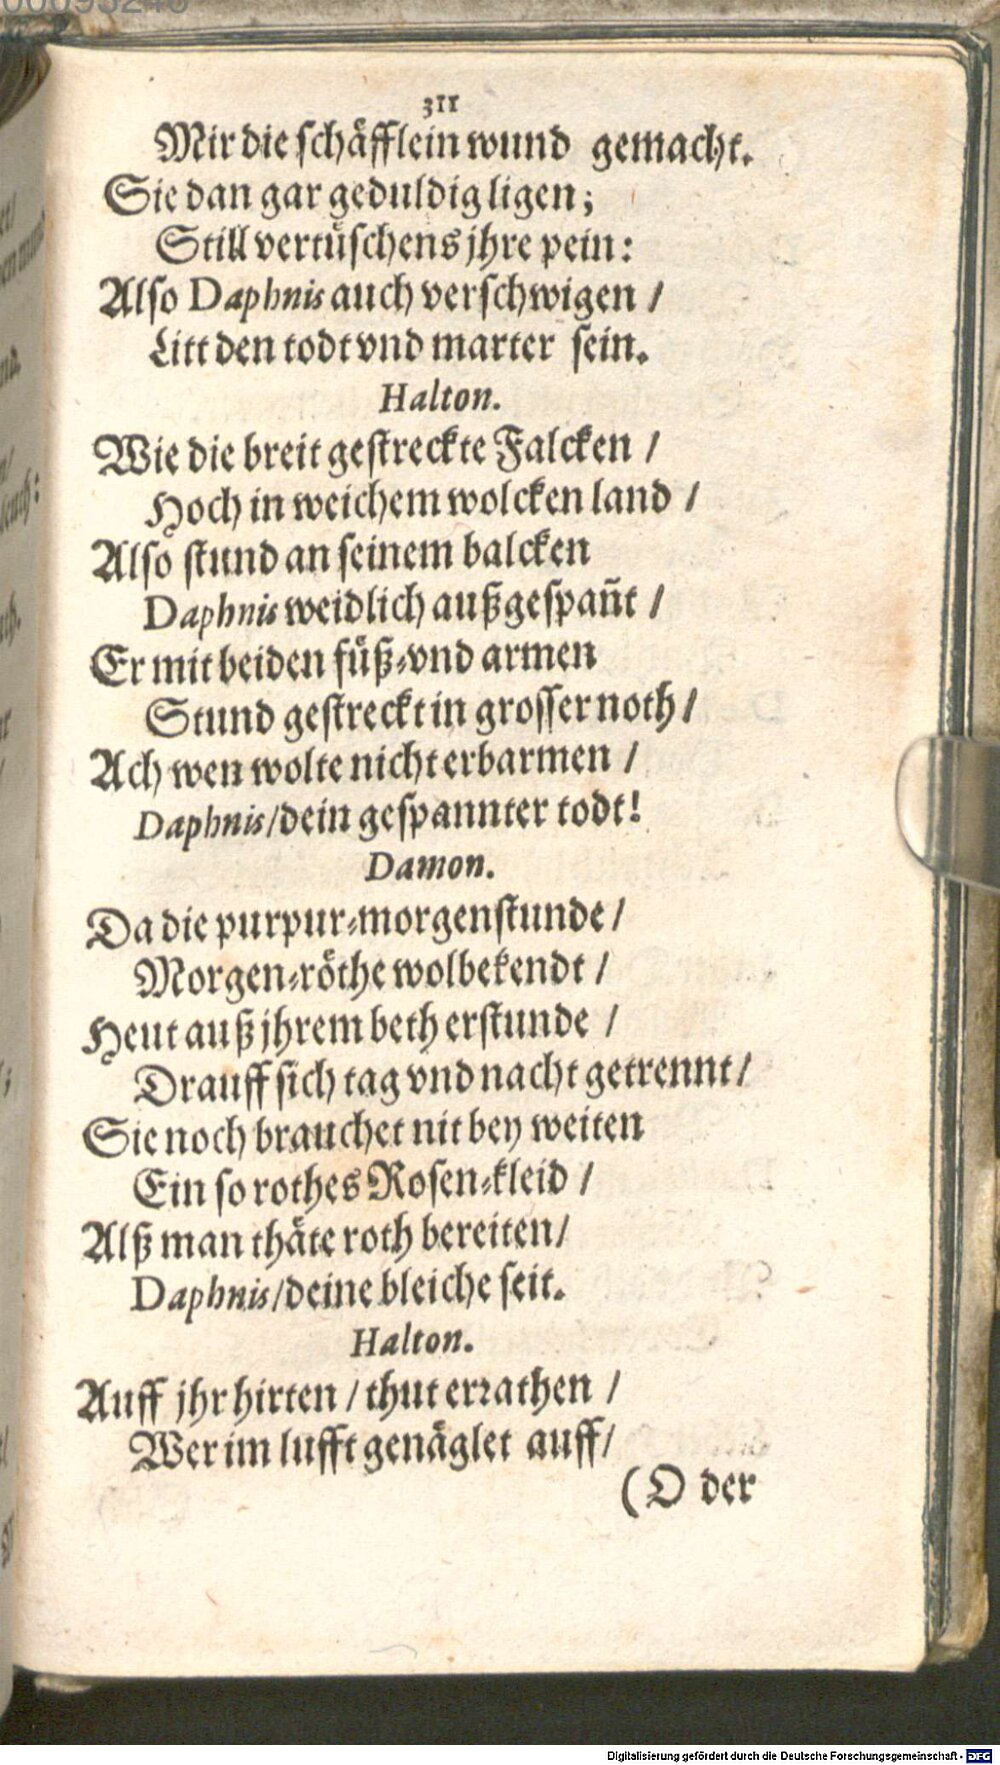 00093240
311
Mir die schäfflein wund gemacht.
Sie dan gar geduldig ligen;
Still vertüschens jhre pein:
Also Daphnis auch verschwigen /
Litt den todt vnd marter sein.
Halton.
Wie die breit gestreckte Falcken /
Hoch in weichem wolcken land /
Also stund an seinem balcken
Daphnis weidlich außgespañt /
Er mit beiden füß-vnd armen
Stund gestreckt in grosser noth /
Ach wen wolte nicht erbarmen /
Daphnis/dein gespannter todt!
Damon.
Da die purpur-morgenstunde /
Morgen-röthe wolbekendt /
Heut auß jhrem beth erstunde /
Drauff sich tag vnd nacht getrennt/
Sie noch brauchet nit bey weiten
Ein so rothes Rosen-kleid /
Alß man thäte roth bereiten/
Daphnis/deine bleiche seit.
Halton.
Auff jhr hirten / thut erꝛathen /
Wer im lufft genäglet auff/
(O der
Digitalisierung gefördert durch die Deutsche Forschungsgemeinschaft - DFG